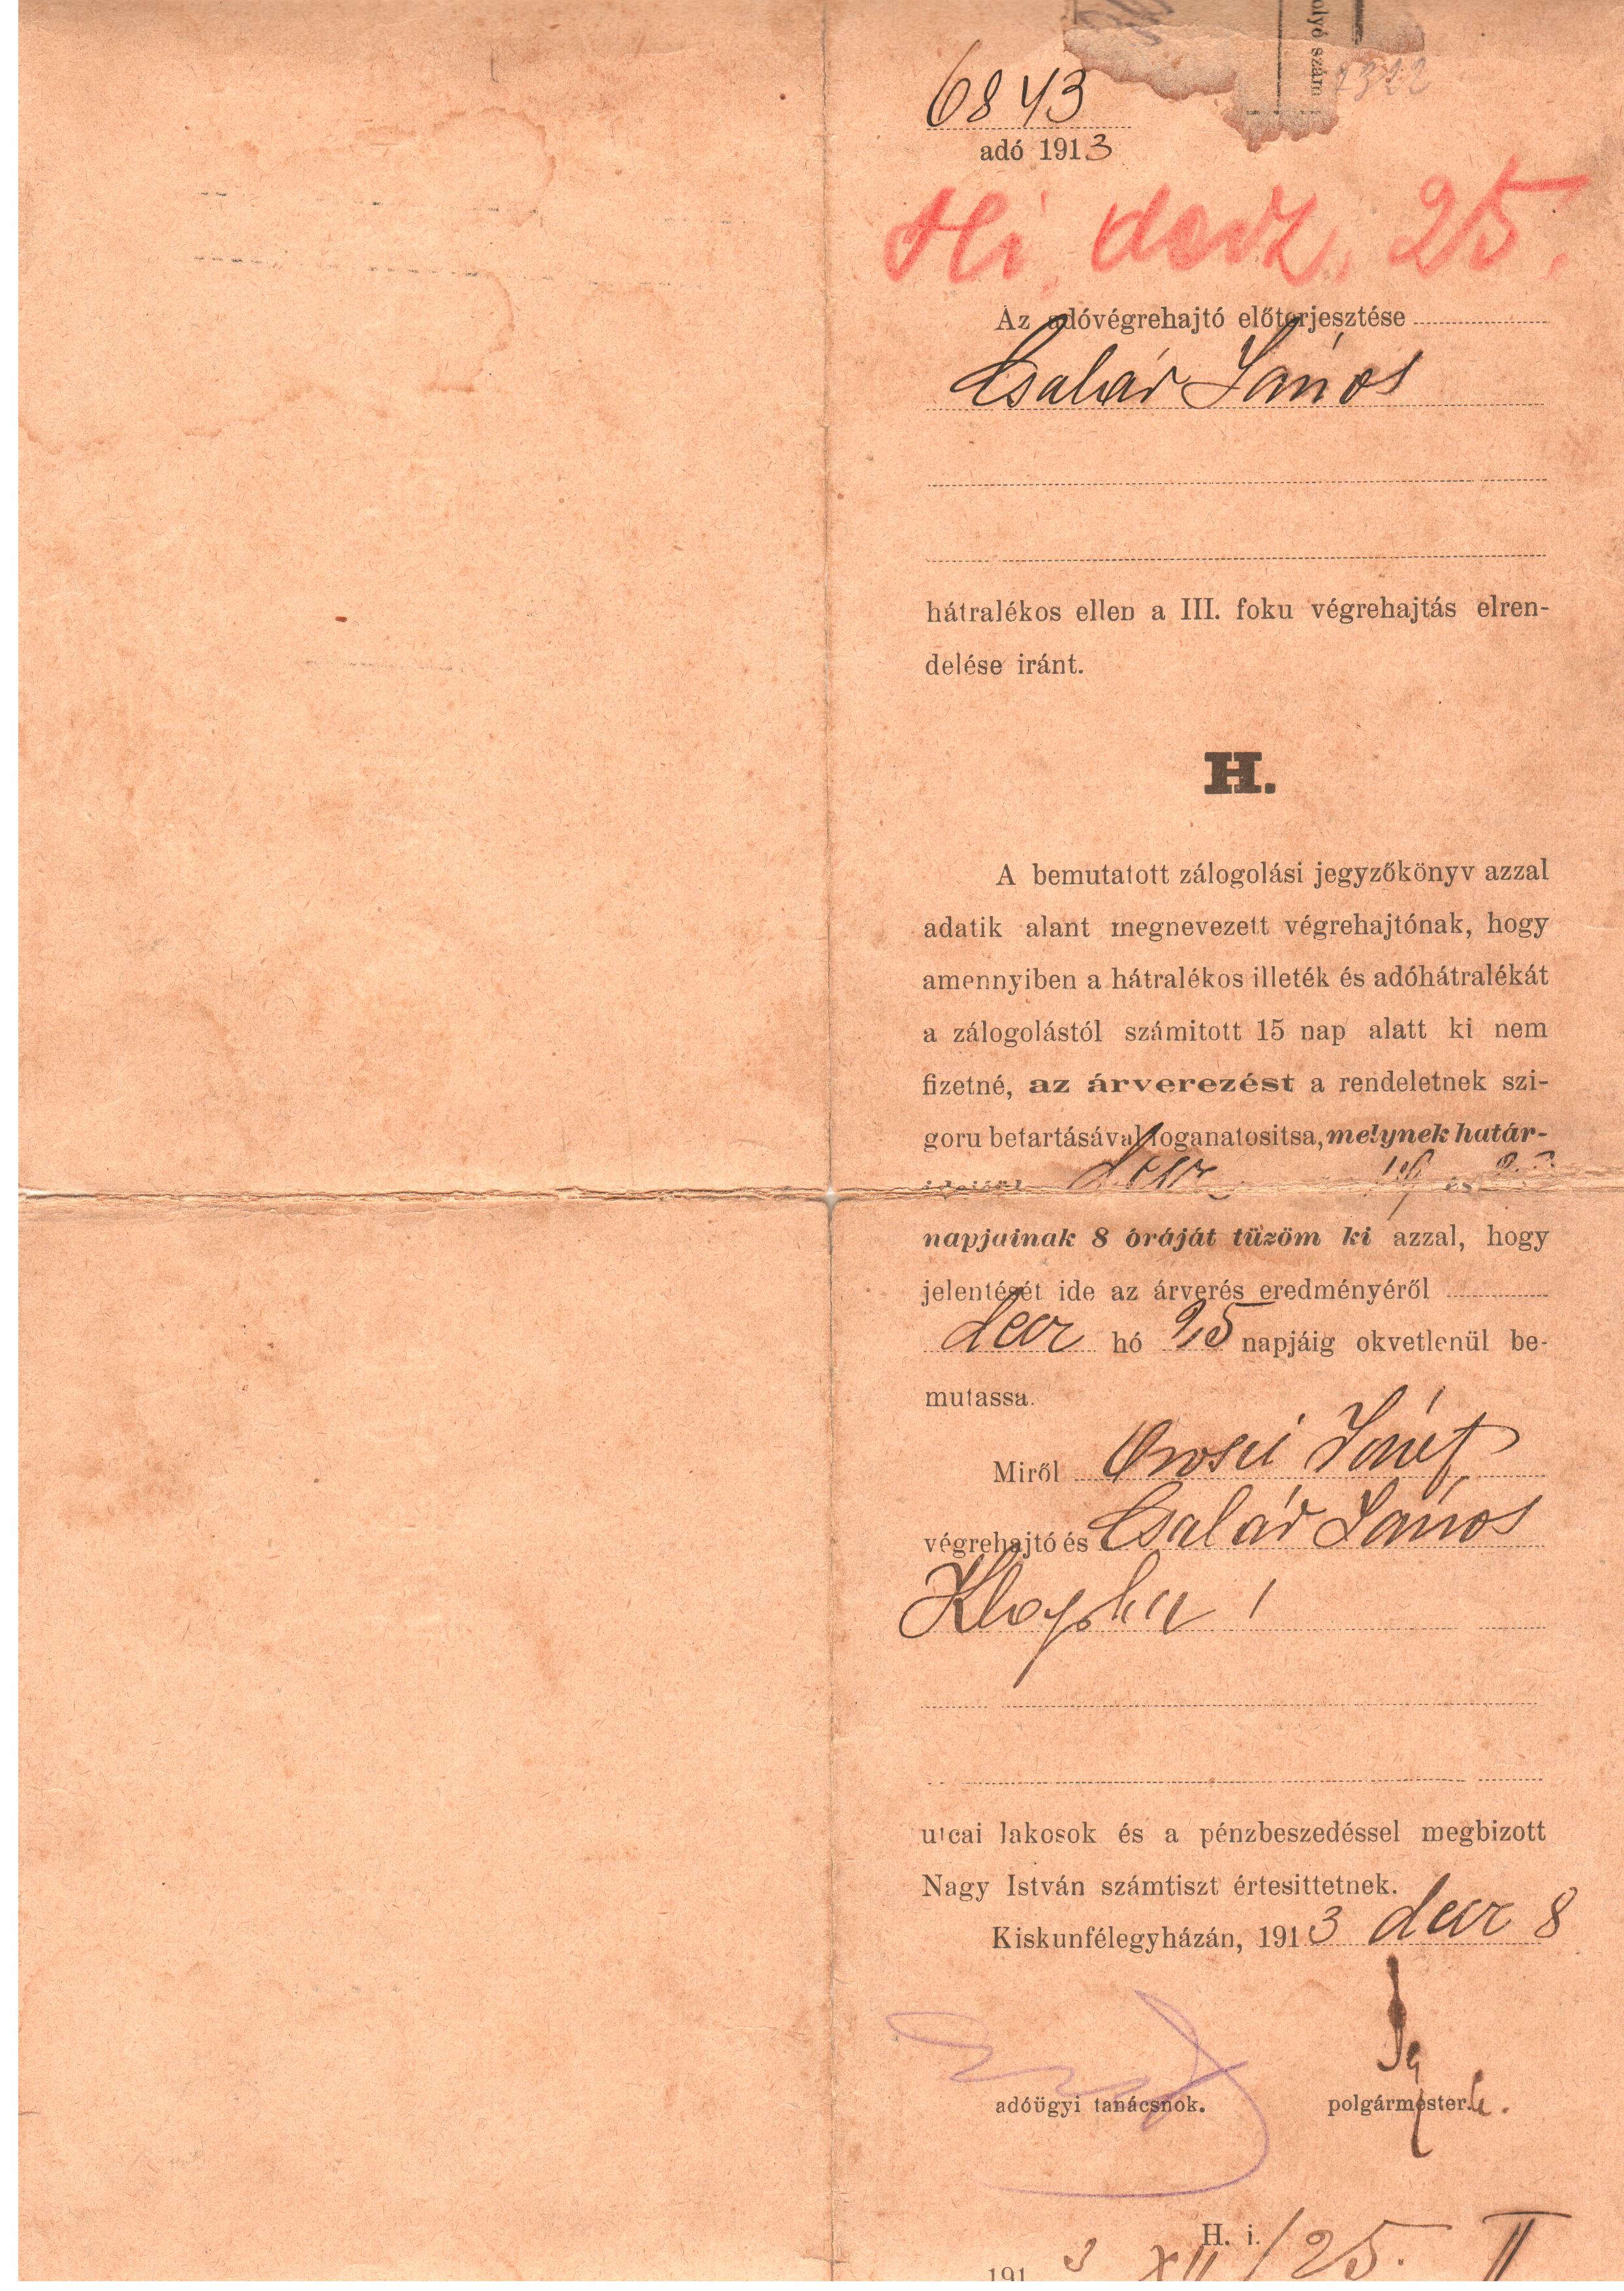 olyó szám
6843
adó 1913
Hi. decz. 25.
Az adóvégrehajtó előterjesztése
Csalár János
hátralékos ellen a III. foku végrehajtás elren-
delése iránt.
H.
A bemutatott zálogolási jegyzőkönyv azzal
adatik alant megnevezett végrehajtónak, hogy
amennyiben a hátralékos illeték és adóhátralékát
a zálogolástól számitott 15 nap alatt ki nem
fizetné, az árverezést a rendeletnek szi-
goru betartásával foganatositsa, melynek határ-
és
napjainak 8 óráját tüzöm ki azzal, hogy
jelentését ide az árverés eredményéről
decz hó 25 napjáig okvetlenül be-
mutassa.
Miről József
végrehajtó és Csalár János
utcai lakosok és a pénzbeszedéssel megbizott
Nagy István számtiszt értesittetnek.
Kiskunfélegyházán, 1913 decz 8
adóügyi tanácsnok. polgármester. h.
H. i.
1913 XII/25. II